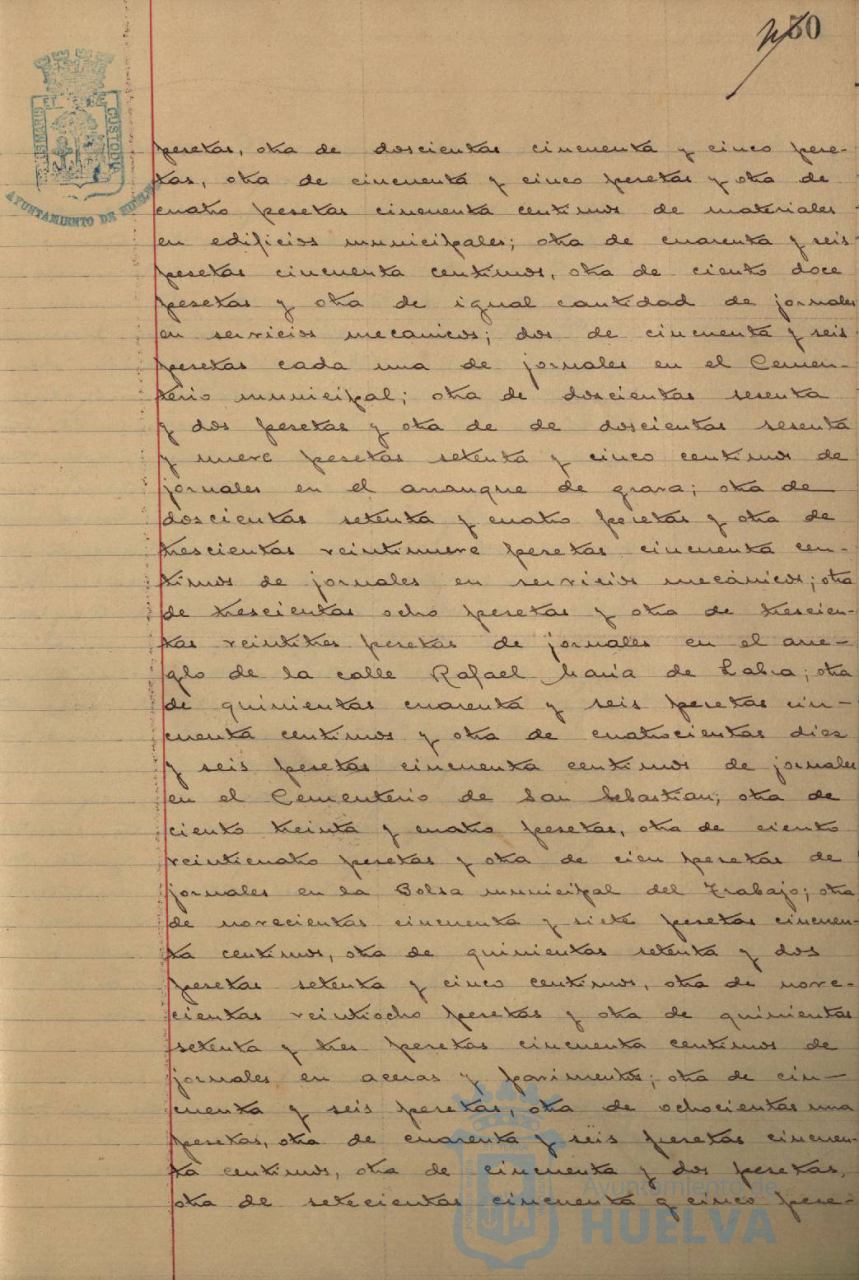 50
PORTUS MARIS ET TERRAE CUSTODIA
AYUNTAMIENTO DE HUELVA
pesetas, otra de doscientas cincuenta y cinco pese-
tas, otra de cincuenta y cinco pesetas y otra de
cuatro pesetas cincuenta centimos de materiales
en edificios municipales; otra de cuarenta y seis
pesetas cincuenta centimos, otra de ciento doce
pesetas y otra de igual cantidad de jornales
en servicios mecanicos; dos de cincuenta y seis
pesetas cada una de jornales en el Cemen-
terio municipal; otra de doscientas sesenta
y dos pesetas y otra de de doscientas sesenta
y nueve pesetas setenta y cinco centimos de
jornales en el arranque de grava; otra de
doscientas setenta y cuatro pesetas y otra de
trescientas veintinueve pesetas cincuenta cen-
timos de jornales en servicios mecánicos; otra
de trescientas ocho pesetas y otra de trescien-
tas veintitres pesetas de jornales en el arre-
glo de la calle Rafael María de Labra; otra
de quinientas cuarenta y seis pesetas cin-
cuenta centimos y otra de cuatrocientas diez
y seis pesetas cincuenta centimos de jornales
en el Cementerio de San Sebastian; otra de
ciento treinta y cuatro pesetas, otra de ciento
veinticuatro pesetas y otra de cien pesetas de
jornales en la Bolsa municipal del Trabajo; otra
de novecientas cincuenta y siete pesetas cincuen-
ta centimos, otra de quinientas setenta y dos
pesetas setenta y cinco centimos, otra de nove-
cientas veintiocho pesetas y otra de quinientas
setenta y tres pesetas cincuenta centimos de
jornales en aceras y pavimentos; otra de cin-
cuenta y seis pesetas, otra de ochocientas una
pesetas, otra de cuarenta y seis pesetas cincuen-
ta centimos, otra de cincuenta y dos pesetas,
otra de setecientas cincuenta y cinco pese-
Ayuntamiento de
HUELVA